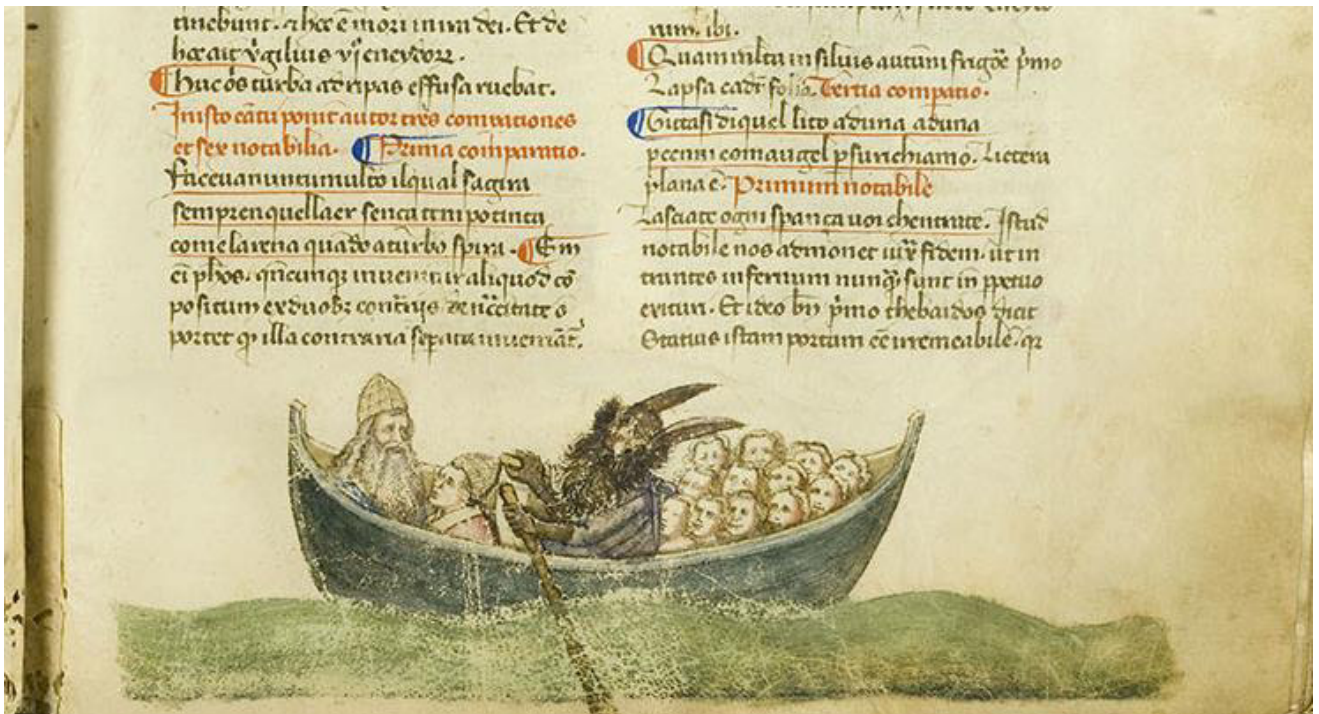 tinebunt. & hec ē mori in ira dei. Et de
hoc ait v̓gilius vj eneydorꝝ.
Huc oīs turba ad ripas effusa ruebat.
In isto cātu ponit autor tres comꝑationes
et sex notabilia. Prima comparatio.
Facevan un tumulto il qual sagira
sempre n quella er senca tempo tinta
come larena quādo a turbo spira. Em
positum ex duobꝫ contrijs de nccītate o
portet ꝙ illa contraria seꝑata inveniāt̄.
num. ibi.
Quam multa in silvis autūni frigōē p̓mo
Lapsa cadt̄ folia. Tertia comꝑatio.
Gittasi di quel lito ad una ad una
ꝑ cenni com augel ꝑ suo richiamo. Lictera
plana ē. Primum notabile
Lasciate ogni sperança voi chentrate. Istud
notabile nos admonet iux̄ fidem. ut in
trantes infernum nunꝙ̄ sunt in ꝑpetuo
exituri. Et ideo bn̄ p̓mo thebaidos dicit
Statius istam portam eē irremeabilē. qꝛ